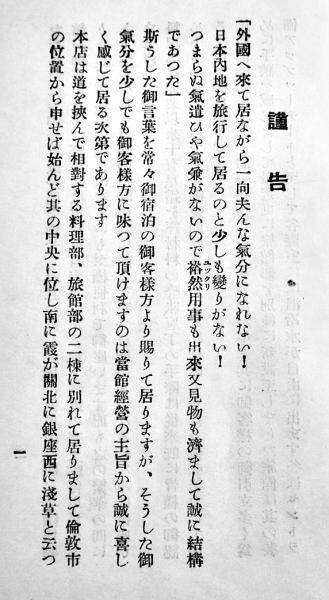 謹告
「外國へ來て居ながら一向夫んな氣分になれない!
日本內地を旅行して居るのと少しも變りがない!
つまらぬ氣遣ひや氣兼がないので裕然用事も出來又見物も濟まして誠に結構
ユックリ
であつた」
斯うした御言葉を常々御宿泊の御客樣方より賜りて居りますが、そうした御
氣分を少しでも御客樣方に味つて頂けますのは當館經營の主旨から誠に喜し
く感じて居る次第であります
本店は道を挾んで相對する料理部、旅館部の二棟に別れて居りまして倫敦市
の位置から申せば殆んど其の中央に位し南に霞が關北に銀座西に淺草と云つ
一